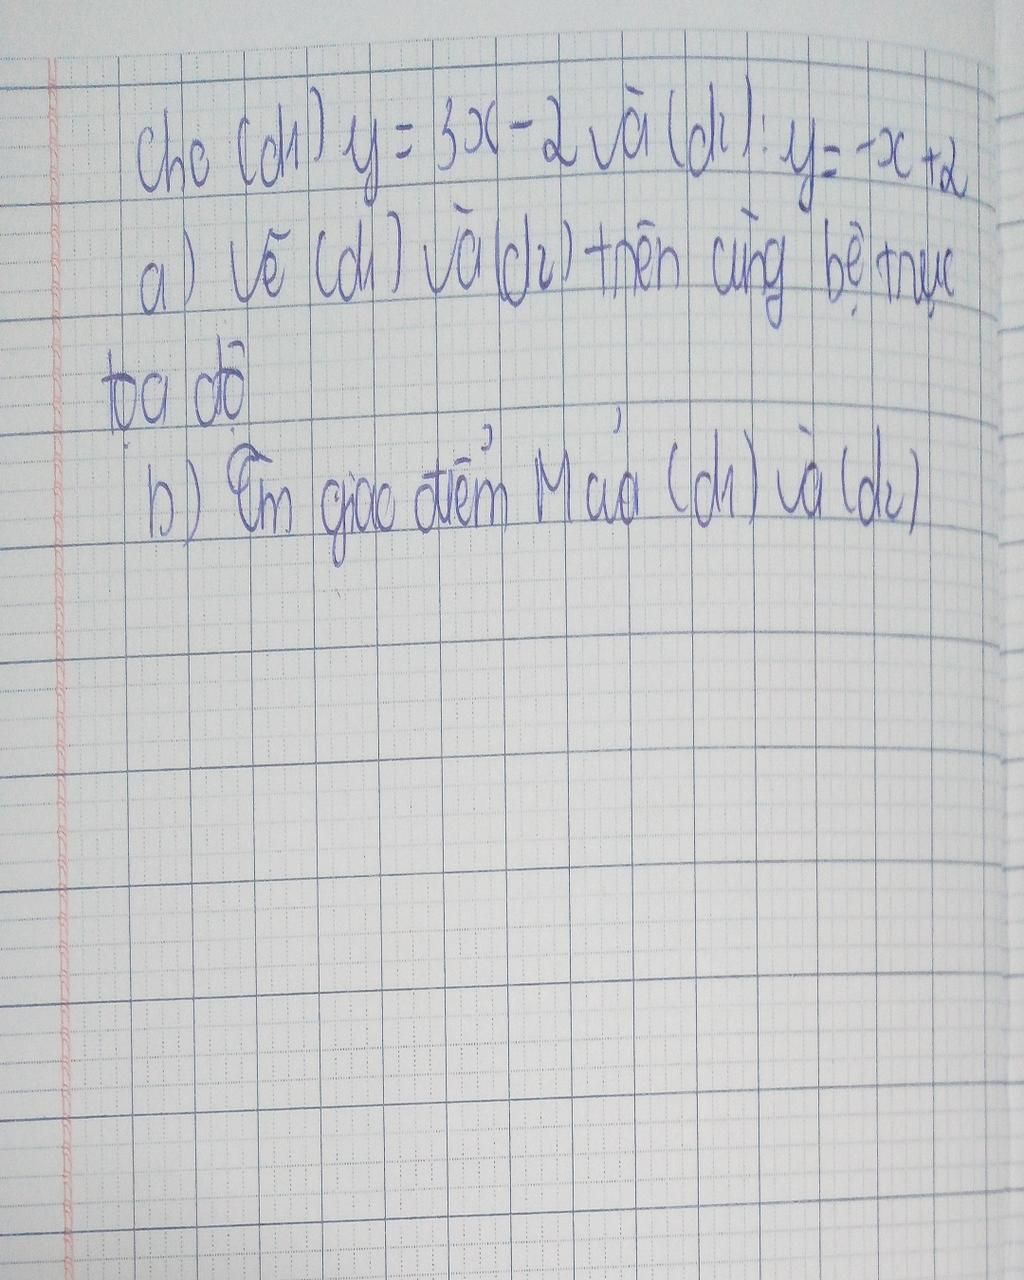 Cho (d1) y = 3x - 2 và (d2): y = -x + 2
a) Vẽ (d1) và (d2) trên cùng hệ trục
tọa độ
b) Tìm giao điểm M của (d1) và (d2)